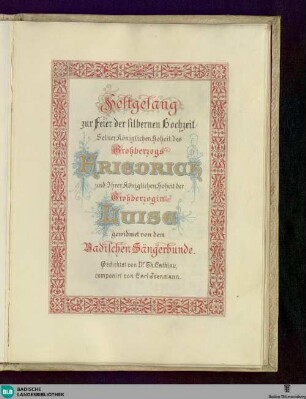 Festgesang
zur Feier der silbernen Hochzeit
Seiner Königlichen Hoheit des
Großherzogs
FRIEDRICH
und Ihrer Königlichen Hoheit der
Großherzogin
LUISE
gewidmet von dem
Badischen Sängerbunde.
Gedichtet von Dr. Th.
componirt von Carl
BLB
BADISCHE
LANDESBIBLIOTHEK
Baden-Württemberg